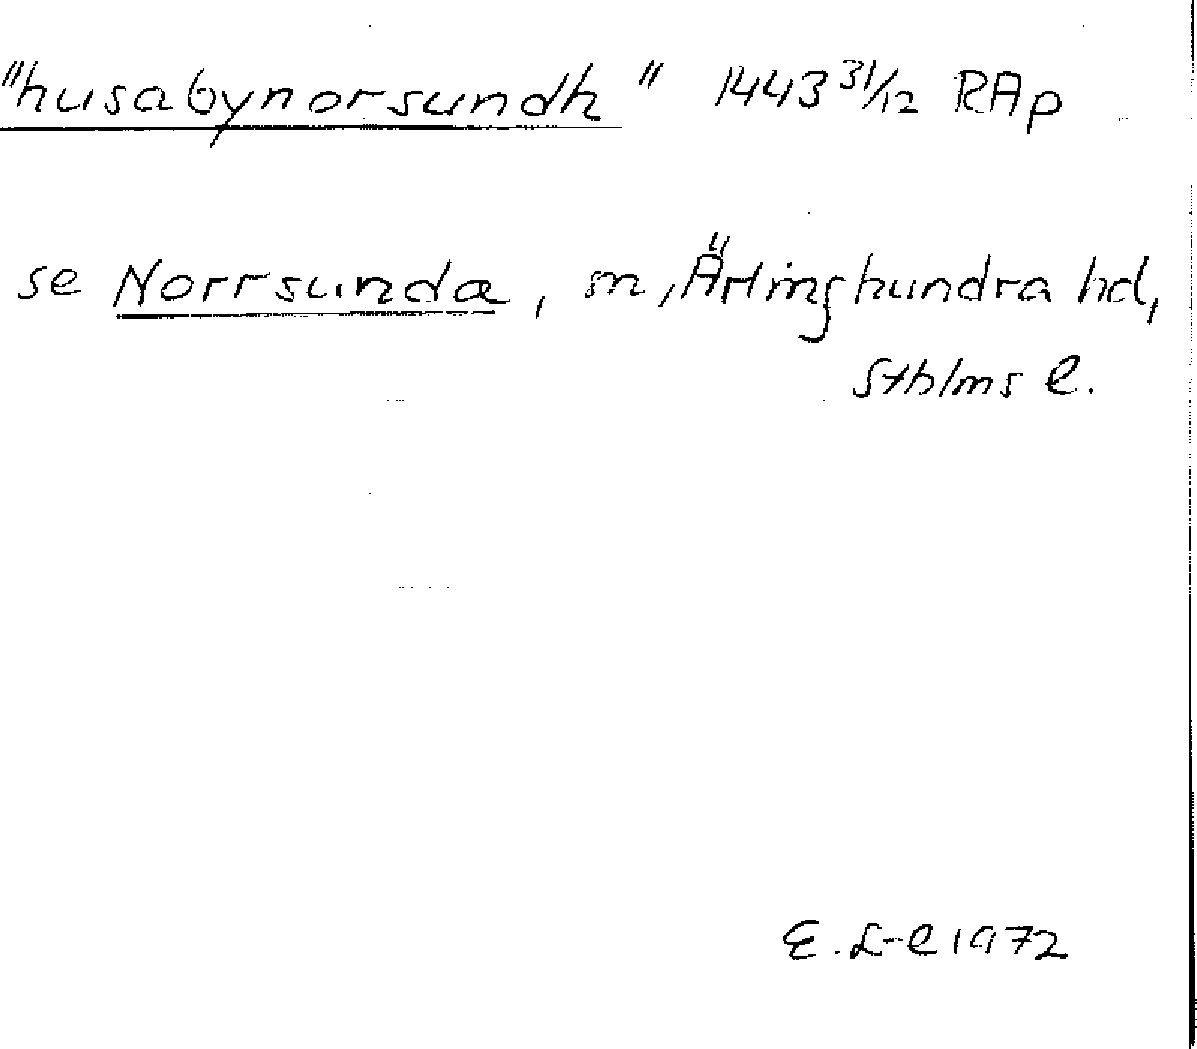 "husabynorsundh" 1443 31/12 RAp
se Norrsunda, sn, Ärlinghundra hd,
Sthlms l.
E. L-e 1972